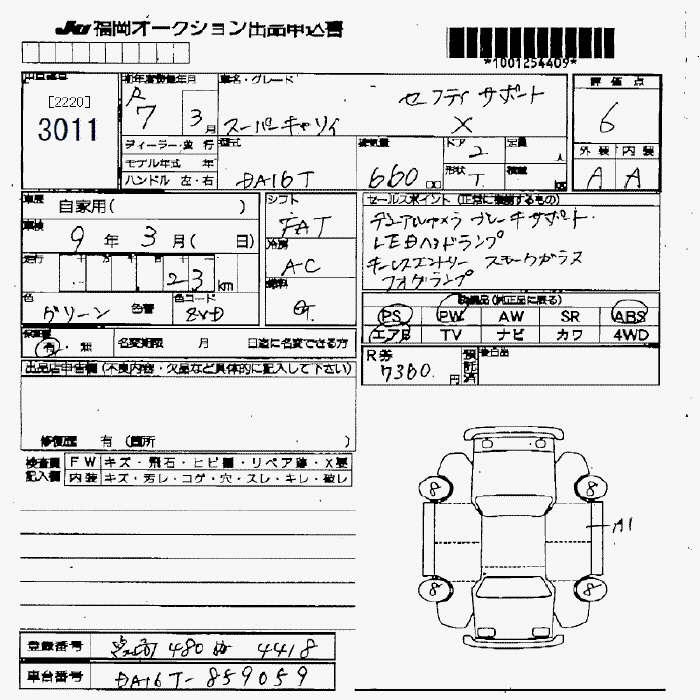 JU 福岡オークション出品申込書
*1001254409*
出品番号
[2220]
3011
初年度登録年月
R 7 3月
車名・グレード
セーフティ サポート
スーパーキャリィ X
評価点
6
外装 内装
A A
ディーラー・並行
モデル年式 年
ハンドル 左・右
型式
DA16T
排気量
660
ドア
2
形状
T
定員
人
積載
車歴
自家用( )
車検
9年 3月( 日)
走行
23 km
色
グリーン 色替
色コード
シフト
FAT
冷房
A-C
燃料
セールスポイント(正常に機能するもの)
デュアルカメラ ブレーキサポート
LEDヘッドランプ
キーレスエントリー スモークガラス
フォグランプ
装備品(純正品に限る)
PS PW AW SR ABS
エアB TV ナビ カワ 4WD
保証書
有・無
名変期限 月 日迄に名変できる方
R券
7360円
預託済
後日品
出品店申告欄(不良内容・欠品など具体的に記入して下さい)
修復歴 有(箇所 )
検査員記入欄
FW キズ・飛石・ヒビ・リペア跡・X要
内装 キズ・汚レ・コゲ・穴・スレ・キレ・破レ
8 8
A1
8 8
登録番号
480 4418
車台番号
DA16T-859059